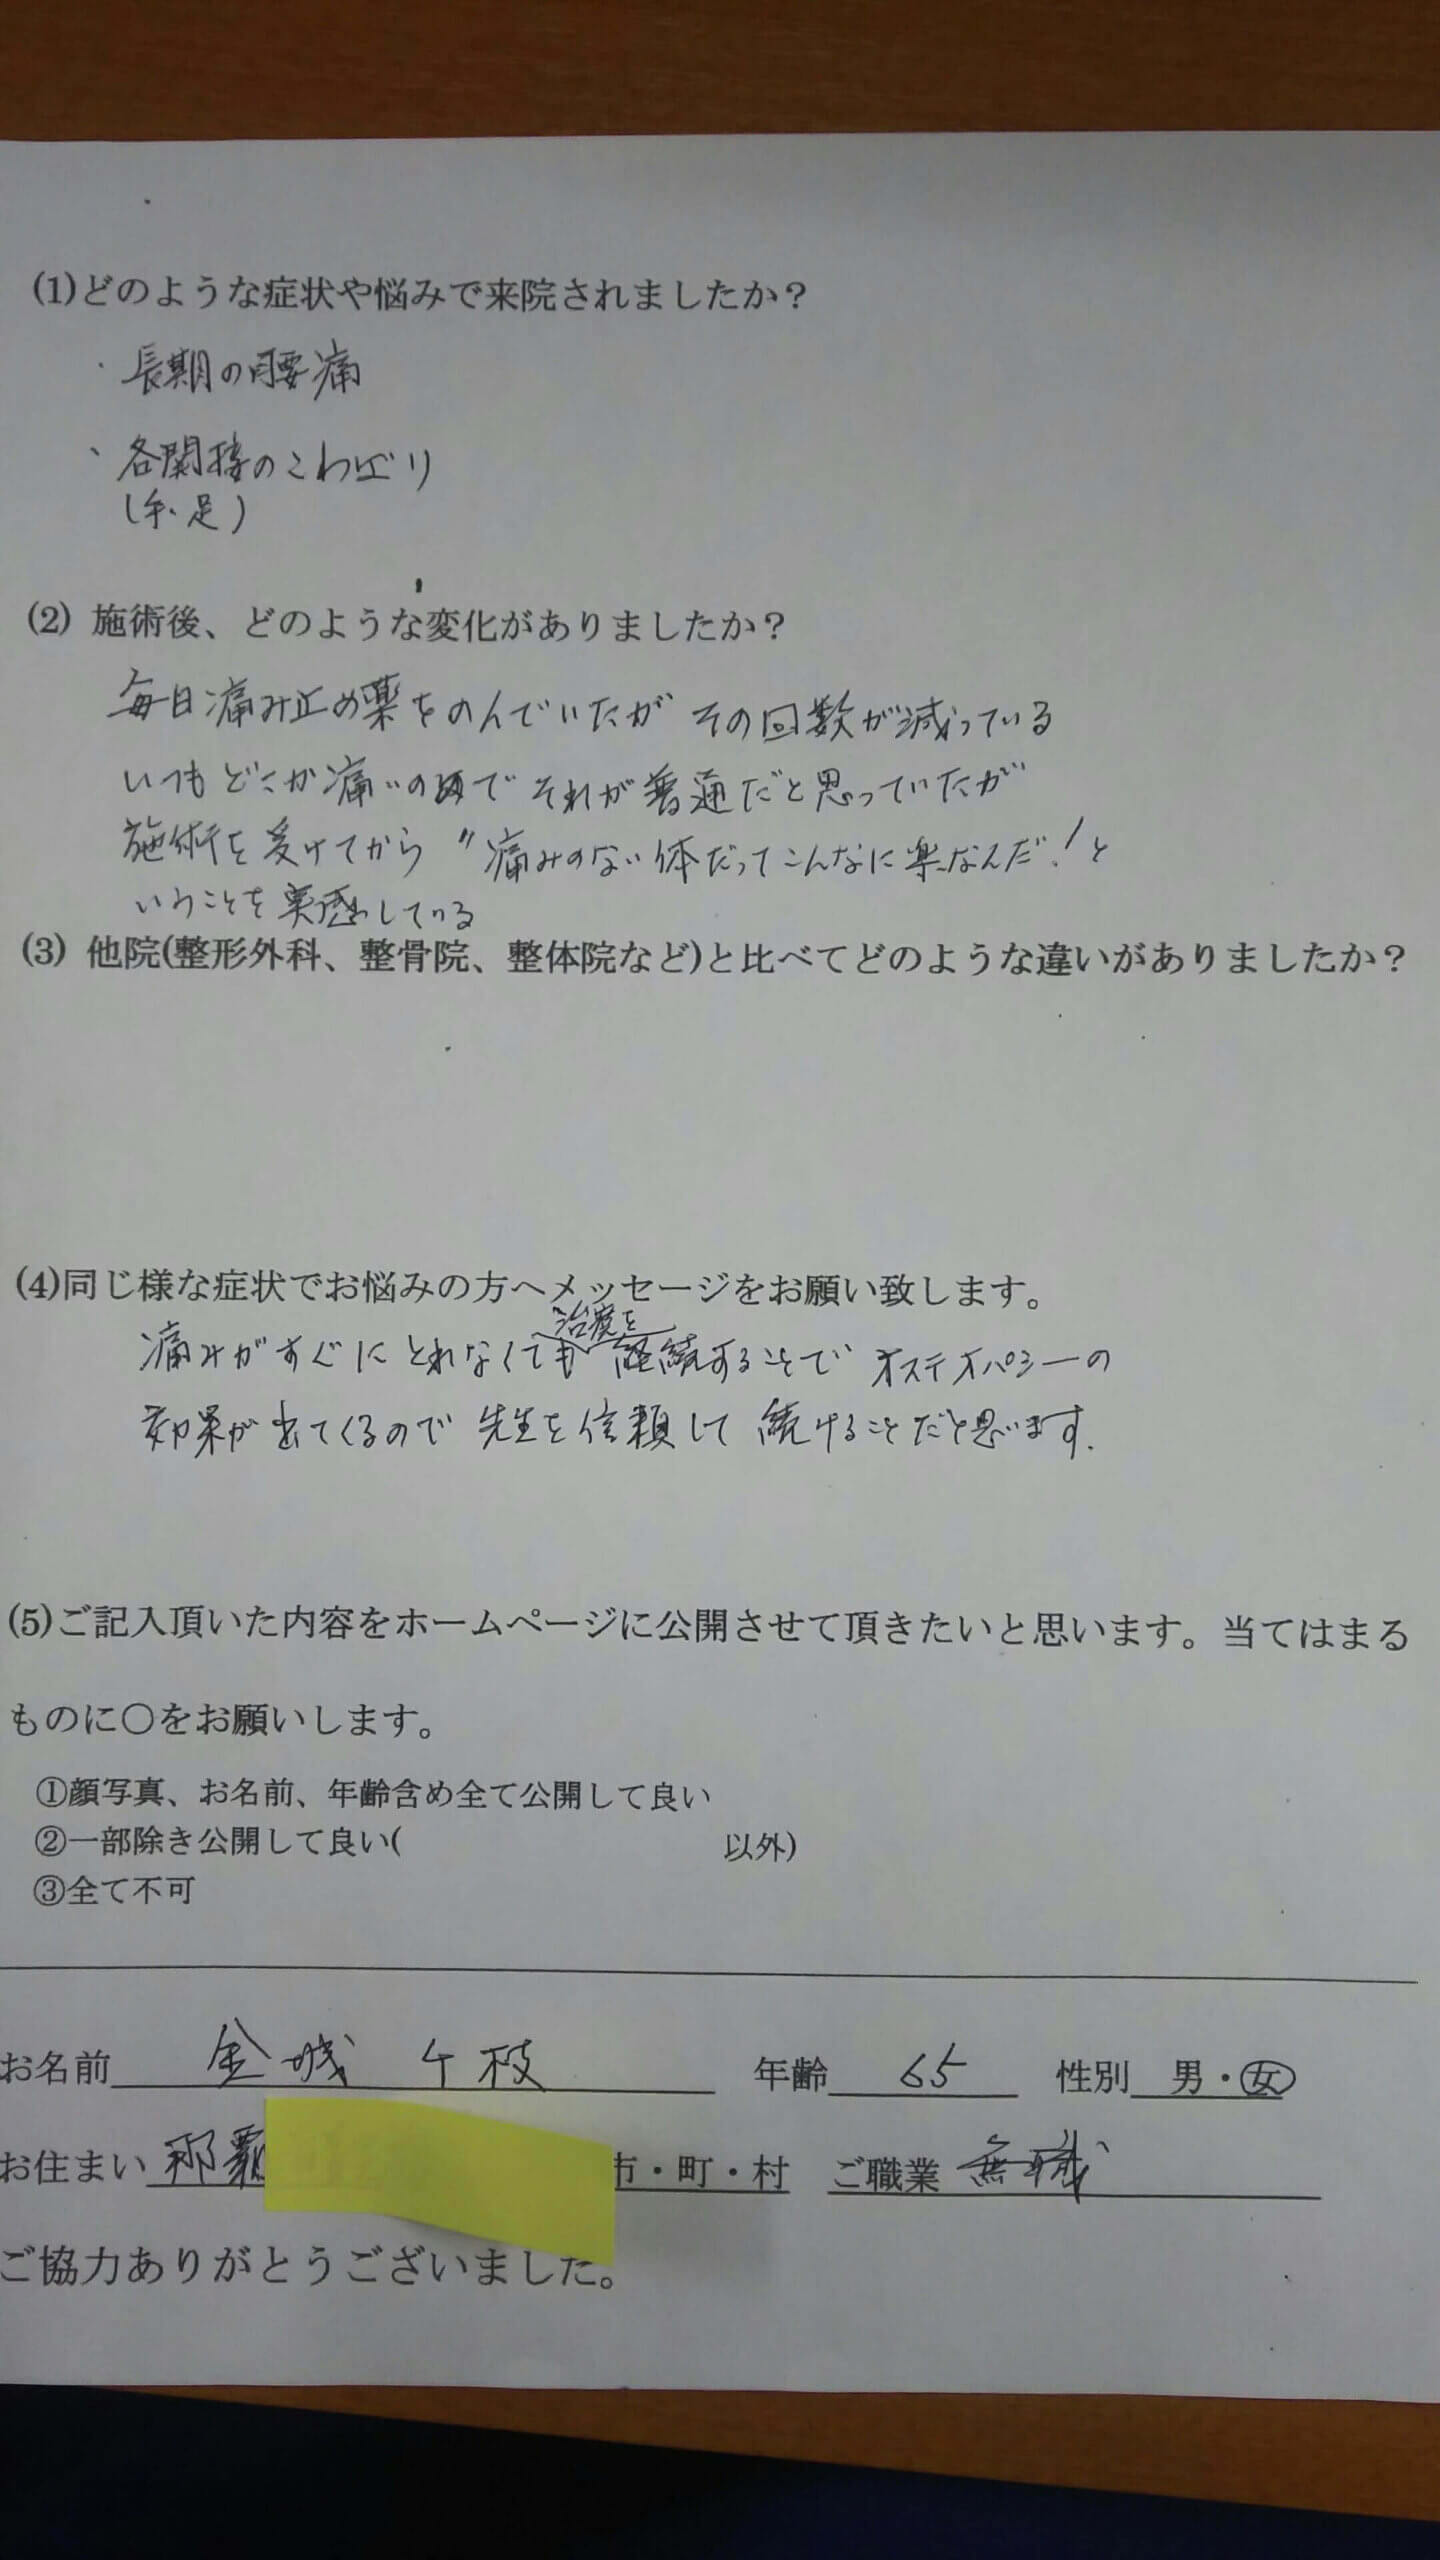 (1)どのような症状や悩みで来院されましたか?
・長期の腰痛
・各関接のこわばり
(手、足)
(2) 施術後、どのような変化がありましたか?
毎日痛み止め薬をのんでいたが その回数が減っている
いつもどこか痛いので それが普通だと思っていたが
施術を受けてから〝痛みのない体だってこんなに楽なんだ!と
いうことを実感している
(3) 他院(整形外科、整骨院、整体院など)と比べてどのような違いがありましたか?
(4)同じ様な症状でお悩みの方へメッセージをお願い致します。
痛みがすぐにとれなくても 治療を 継続することで オステオパシーの
効果が出てくるので 先生を信頼して 続けることだと思います.
(5)ご記入頂いた内容をホームページに公開させて頂きたいと思います。当てはまる
ものに〇をお願いします。
①顔写真、お名前、年齢含め全て公開して良い
②一部除き公開して良い( 以外)
③全て不可
お名前 金城 枝 年齢 65 性別 男・女
お住まい 那覇 市・町・村 ご職業 無職
ご協力ありがとうございました。